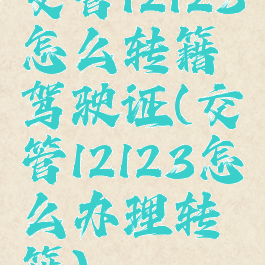 交管12123
怎么转籍
驾驶证(交
管12123怎
么办理转
籍)